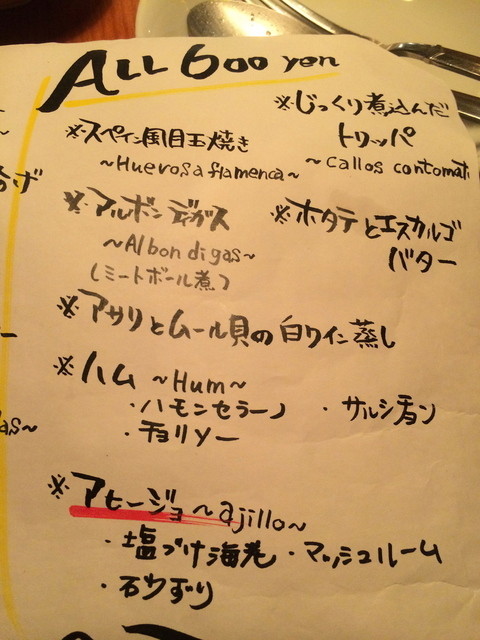 ALL 600 yen
※スペイン風目玉焼き
~Huevos a flamenca~
※じっくり煮込んだ
トリッパ
~callos con tomat
※アルボンディガス
~Albondigas~
(ミートボール煮)
※ホタテとエスカルゴ
バター
※アサリとムール貝の白ワイン蒸し
※ハム ~Hum~
・ハモンセラーノ ・サルシチョン
・チョリソー
※アヒージョ~ajillo~
・塩づけ海老・マッシュルーム
・砂ずり